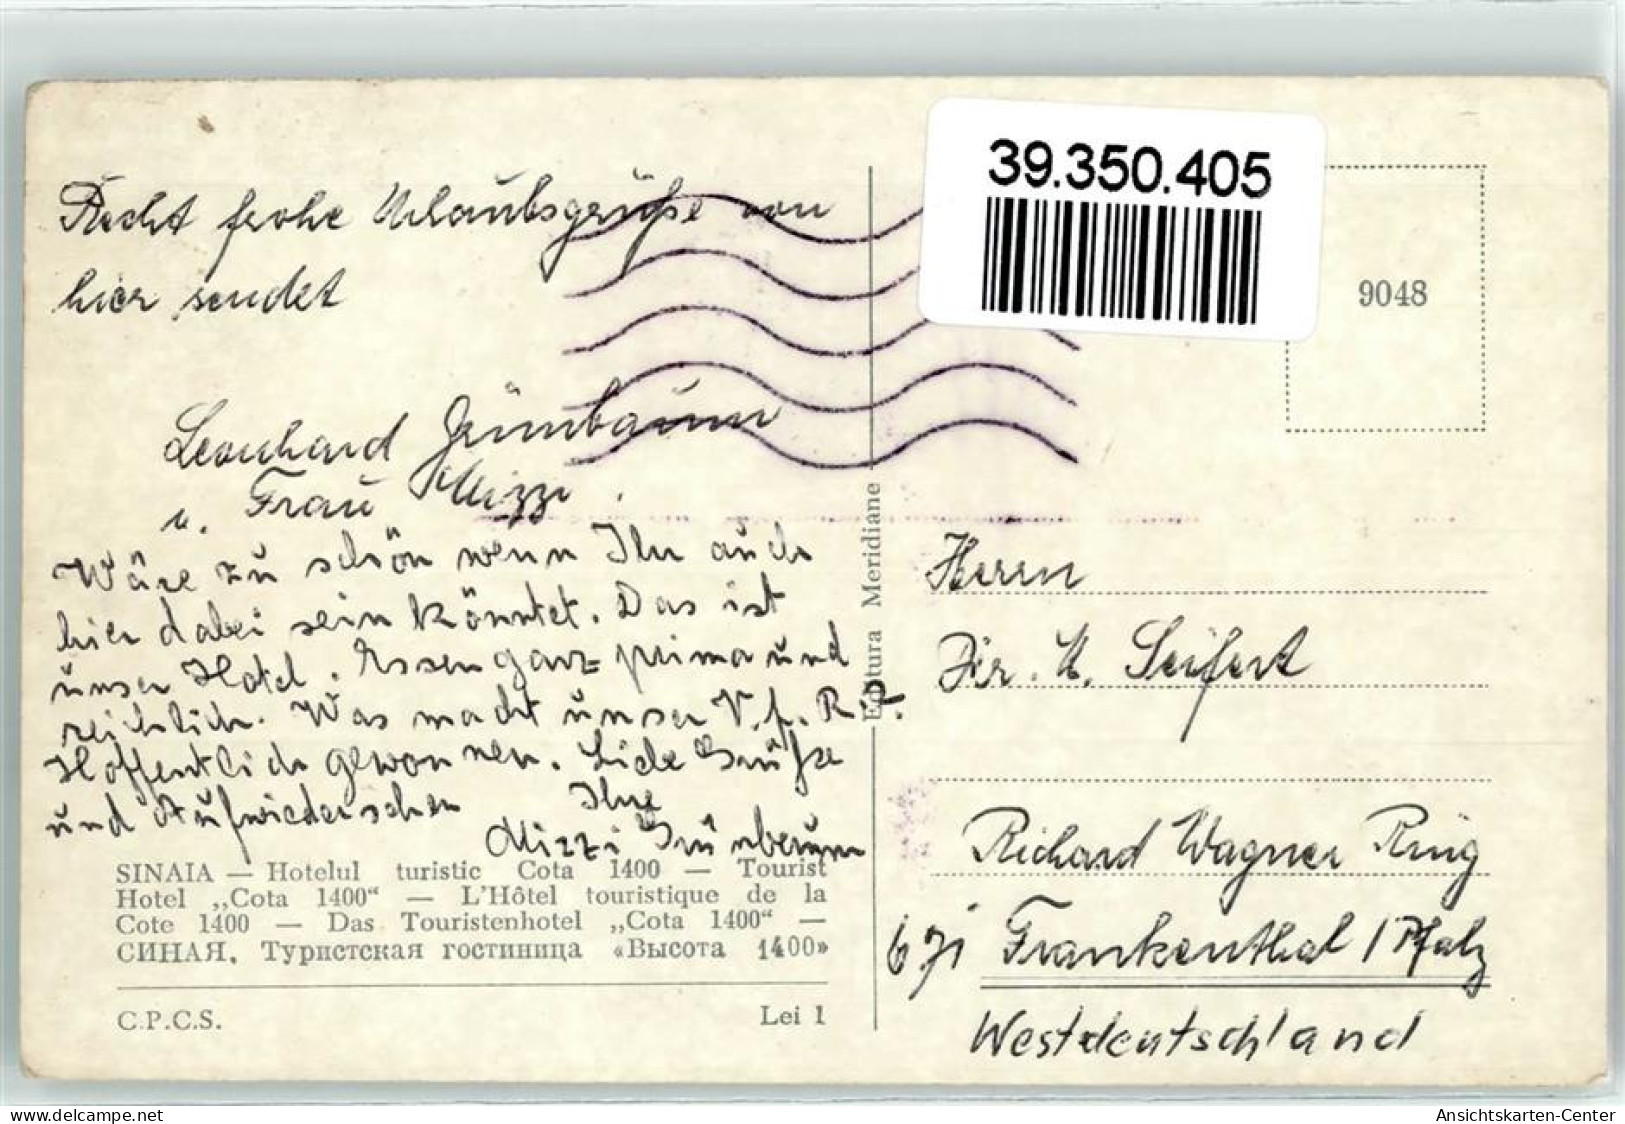 39.350.405
9048
Recht frohe Urlaubsgrüße von
hier sendet
Leonhard Grünbaum
u. Frau Mizzi.
Wäre zu schön wenn Ihr auch
hier dabei sein könntet. Das ist
unser Hotel. Essen ganz prima und
reichlich. Was macht unser V.f.R.?
Hoffentlich gewonnen. Liebe Grüße
und Aufwiedersehen Ihre
Mizzi Grünbaum
SINAIA — Hotelul turistic Cota 1400 — Tourist
Hotel „Cota 1400“ — L'Hôtel touristique de la
Cote 1400 — Das Touristenhotel „Cota 1400“ —
СИНАЯ, Туристская гостиница «Высота 1400»
C.P.C.S.
Lei 1
Editura Meridiane
Herrn
Dir. K. Seifert
Richard Wagner Ring
671 Frankenthal / Pfalz
Westdeutschland
www.delcampe.net
Ansichtskarten-Center